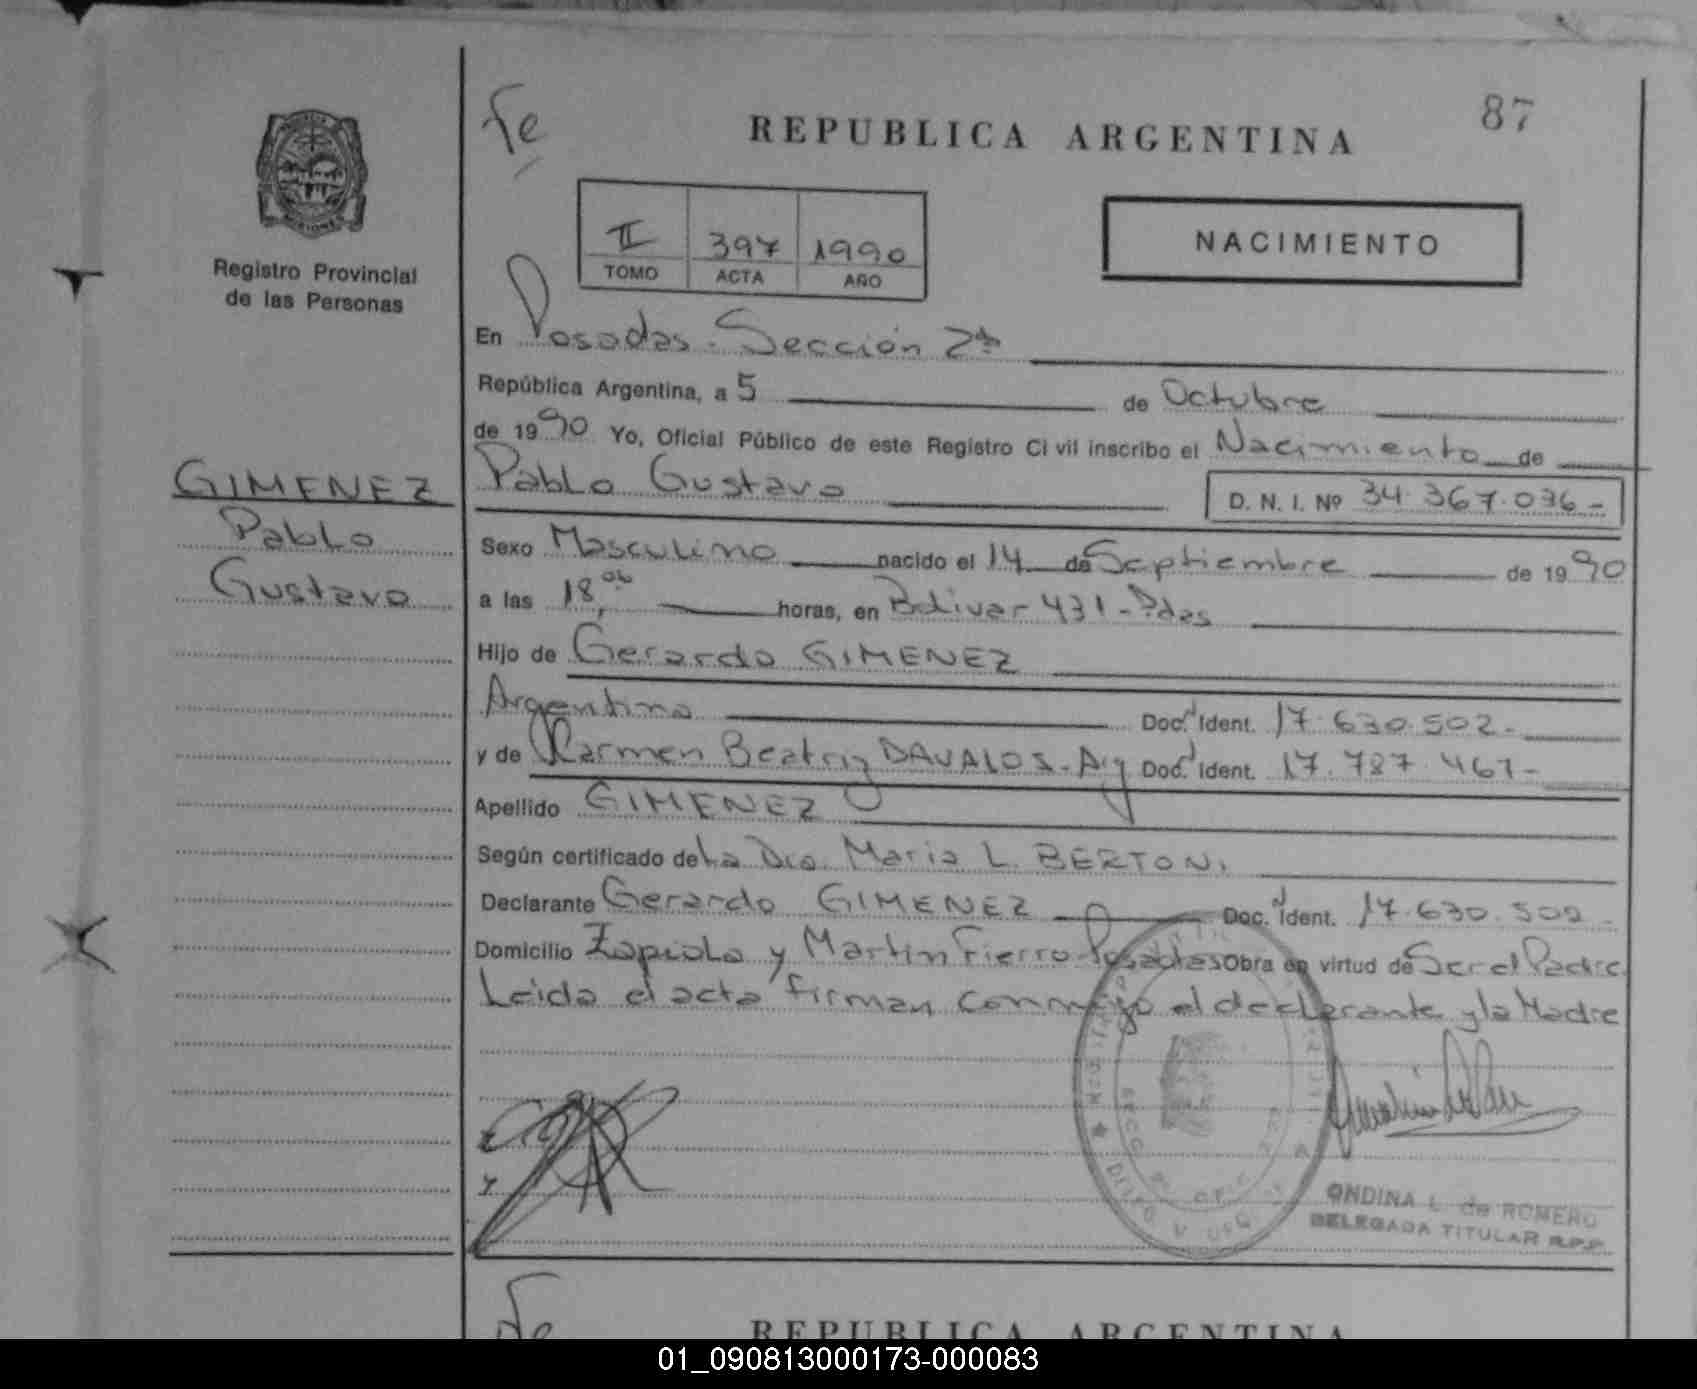 Fe
REPUBLICA ARGENTINA
87
II 397 1990
TOMO ACTA AÑO
NACIMIENTO
Registro Provincial
de las Personas
En Posadas - Sección 2ª
República Argentina, a 5 de Octubre
de 1990 Yo, Oficial Público de este Registro Civil inscribo el Nacimiento de
GIMENEZ
Pablo
Gustavo
Pablo Gustavo D. N. I. Nº 34.367.036-
Sexo Masculino nacido el 14 de Septiembre de 1990
a las 18, horas, en Bolivar 431 - Pdas
Hijo de Gerardo GIMENEZ
Argentino Doc. Ident. 17.630.502-
y de Carmen Beatriz DAVALOS - Arg Doc. Ident. 17.787.467-
Apellido GIMENEZ
Según certificado de La Dra. Maria L. BERTONI
Declarante Gerardo GIMENEZ Doc. Ident. 17.630.502-
Domicilio Zapiola y Martin Fierro Posadas Obra en virtud de Ser el Padre
Leida el acta firman conmigo el declarante y la Madre
ONDINA L. de ROMERO
DELEGADA TITULAR R.P.P.
Fe
REPUBLICA ARGENTINA
01_090813000173-000083